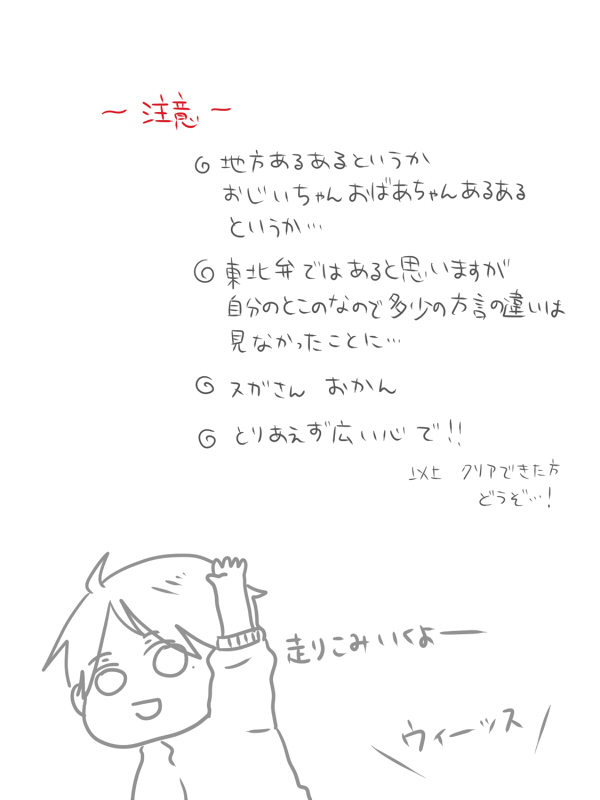 ～ 注意 ～
地方あるあるというか
おじいちゃんおばあちゃんあるある
というか…
東北弁ではあると思いますが
自分のとこのなので多少の方言の違いは
見なかったことに…
スガさん おかん
とりあえず広い心で!!
以上 クリアできた方
どうぞ…!
走りこみいくよー
ウィーッス